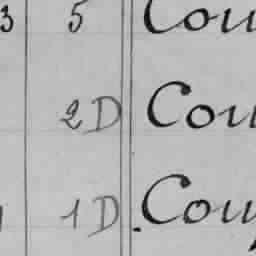 3 5 Cou
2 D Cou
1 D Cou